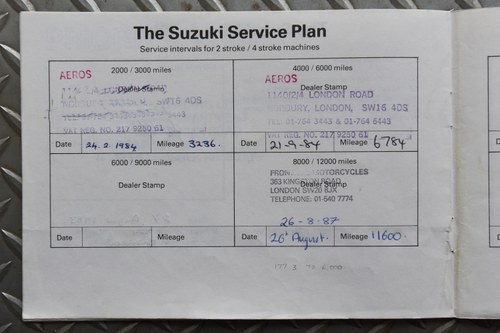 The Suzuki Service Plan
Service intervals for 2 stroke / 4 stroke machines
2000 / 3000 miles
AEROS
Dealer Stamp
SW16 4DS
3443
VAT REG. NO. 217 9250 61
Date 24.2.1984 Mileage 3236.
4000 / 6000 miles
AEROS
Dealer Stamp
LONDON ROAD
LONDON, SW16 4DS
TEL: 01-764 3443 & 01-764 6443
VAT REG. NO. 217 9250 61
Date 21-9-84 Mileage 6784
6000 / 9000 miles
Dealer Stamp
Date Mileage
8000 / 12000 miles
Dealer Stamp
MOTORCYCLES
363 KINGSTON ROAD
LONDON SW20 8JX
TELEPHONE: 01-540 7774
26-8-87
Date 26 August. Mileage 11600.